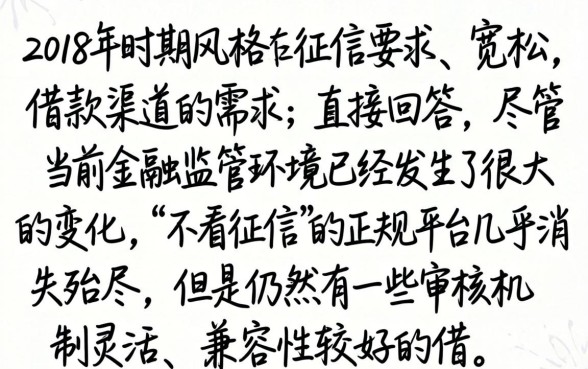 2018年时期风格在征信要求、宽松，
借款渠道的需求；直接回答，尽管
当前金融监管环境已经发生了很大
的变化，“不看征信”的正规平台几乎消
失殆尽，但是仍然有一些审核机
制灵活、兼容性较好的借。